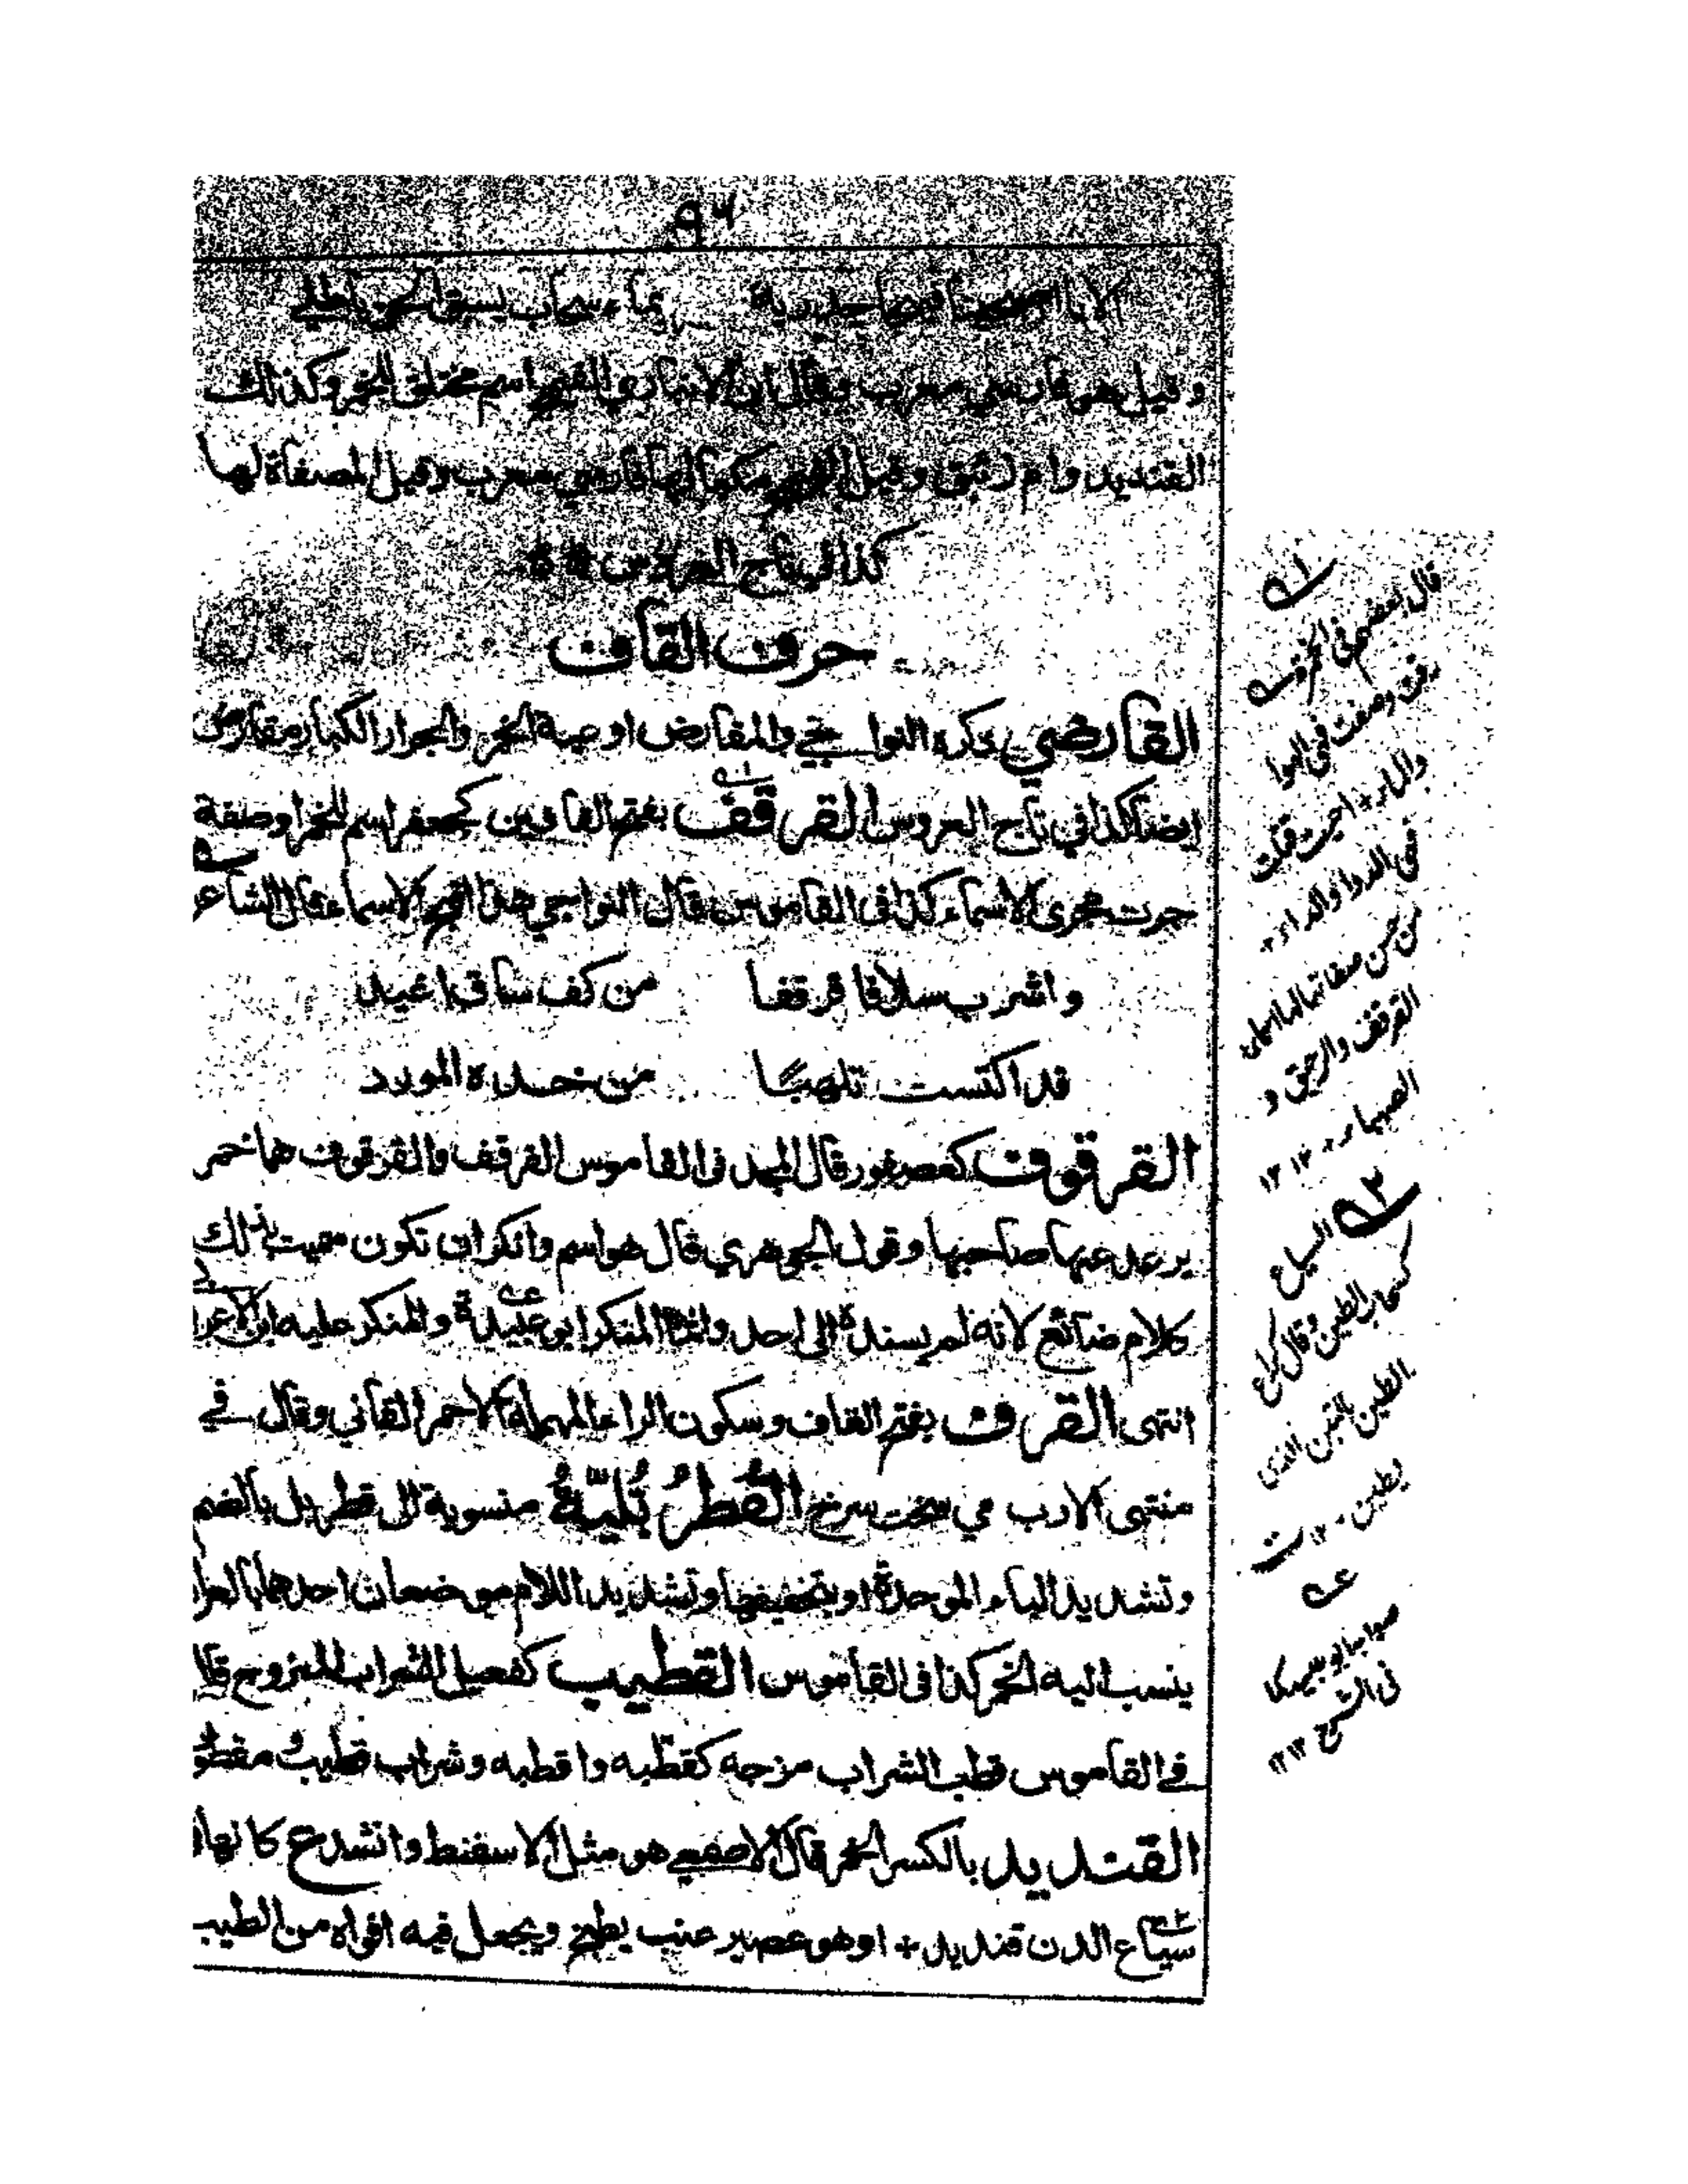 ٩٦
الا يا اصبحينا فيهجا جيدرية بماء سحاب يسبق الحق باطلي
وقيل هو فارسي معرب وقال ابن الانباري الفيهج اسم مختلق للخمر وكذلك
القنديد وام زنبق وقيل الفيهج فارسي معرب وقيل المصفاة لها
كذا في تاج العروس
حرف القاف
القارضي ذكره النواجي والمقارض اوعية الخمر والجرار الكبار مقارض
ايضا كذا في تاج العروس القرقف بفتح القافين كجعفر اسم للخمر او صفة
جرت مجرى الاسماء كذا في القاموس قال النواجي هذا اقبح الاسماء قال الشاعر
واشرب سلافا قرقفا من كف ساق اغيد
قد اكتست تلهبًا من خده المورد
القرقوف كعصفور قال المجد في القاموس القرقف والقرقوف هما خمر
يرعد عنها صاحبها وقول الجوهري قال هو اسم وانكر ان تكون سميت بذلك
كلام ضائع لانه لم يسنده الى احد وانما المنكر ابو عبيدة والمنكر عليه ابن الاعرا
انتهى القرف بفتح القاف وسكون الراء المهملة الاحمر القاني وقال في
منتهى الارب مي سخت سرخ القُطرُبُّليّةُ منسوبة الى قطربل بالضم
وتشديد الباء الموحدة او بتخفيفها وتشديد اللام موضعان احدهما بالعرا
ينسب اليه الخمر كذا في القاموس القطيب كفعيل الشراب الممزوج قال
في القاموس قطب الشراب مزجه كقطّبه واقطبه وشراب قطيب ومقطو
القنديد بالكسر الخمر قال الاصمعي هو مثل الاسفنط وانشد ع كانها
سياع الدن قنديد + او هو عصير عنب يطبخ ويجعل فيه افواه من الطيب
١
قال بعضهم في الخمر
رقت وصفت فهي الهوا
والماء
فهي الدوا والداء
من حسن صفاتها لها اسماء
القرقف والرحيق و
الصهباء ١٢ ١٢
٢
السياع
كسحاب الطين وقال كراع
الطين بالتبن الذي
يطين ١٢ ت
عه
صوابه ابو عبيد كما
في الشرح ١٢ ١٢